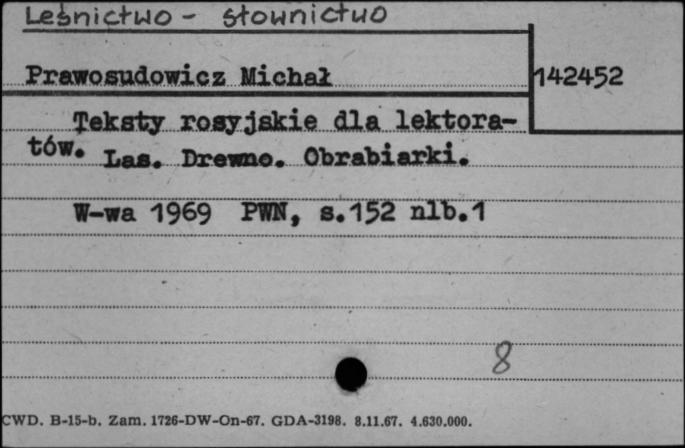 Leśnictwo - słownictwo
Prawosudowicz Michał
142452
Teksty rosyjskie dla lektora-
tów. Las. Drewno. Obrabiarki.
W-wa 1969 PWN, s.152 nlb.1
8
CWD. B-15-b. Zam. 1726-DW-On-67. GDA-3198. 8.11.67. 4.630.000.